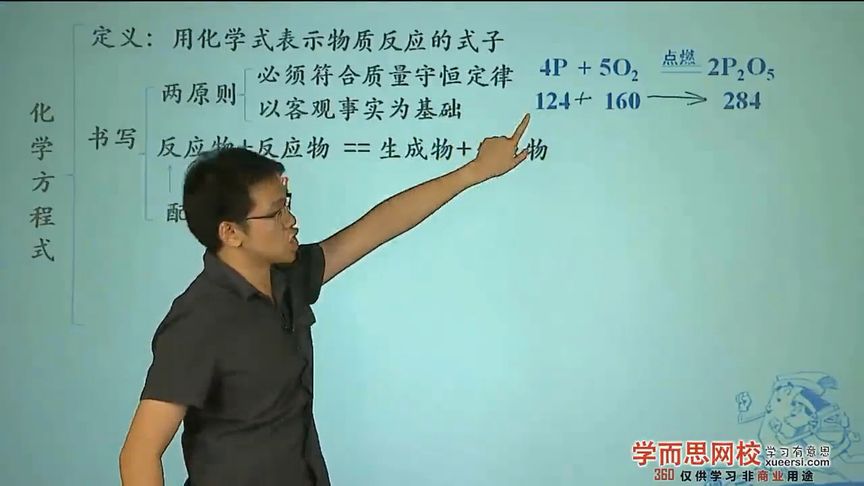 定义：用化学式表示物质反应的式子
两原则
必须符合质量守恒定律
以客观事实为基础
化学方程式
书写
反应物+反应物 == 生成物+ 物
配
4P + 5O₂ 点燃 2P₂O₅
124 + 160 → 284
学而思网校 学习有意思
xueersi.com
360 仅供学习 非商业用途